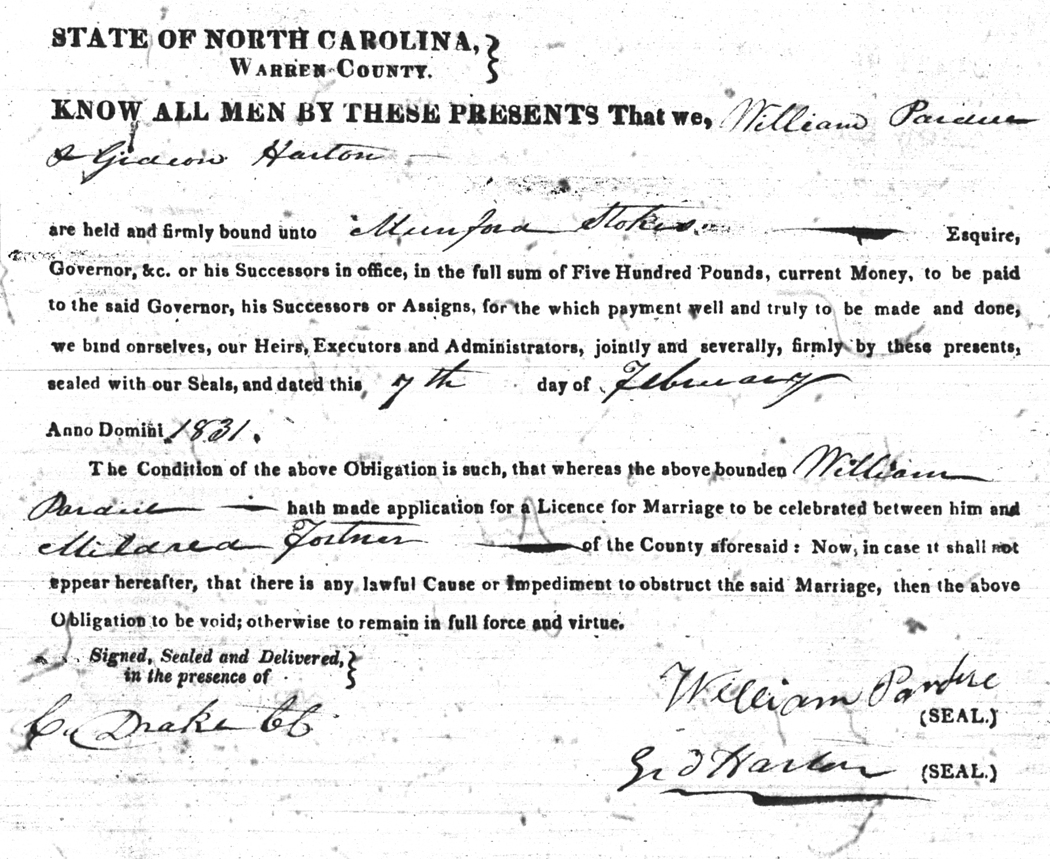 STATE OF NORTH CAROLINA,
WARREN COUNTY.
KNOW ALL MEN BY THESE PRESENTS That we, William Pardue
& Gideon Harton
are held and firmly bound unto Munford Stokes Esquire,
Governor, &c. or his Successors in office, in the full sum of Five Hundred Pounds, current Money, to be paid
to the said Governor, his Successors or Assigns, for the which payment well and truly to be made and done,
we bind onrselves, our Heirs, Executors and Administrators, jointly and severally, firmly by these presents,
sealed with our Seals, and dated this 7th day of February
Anno Domini 1831.
The Condition of the above Obligation is such, that whereas the above bounden William
Pardue hath made application for a Licence for Marriage to be celebrated between him and
Mildred Fortner of the County aforesaid: Now, in case it shall not
appear hereafter, that there is any lawful Cause or Impediment to obstruct the said Marriage, then the above
Obligation to be void; otherwise to remain in full force and virtue.
Signed, Sealed and Delivered,
in the presence of
Drake CC
William Pardue
(SEAL.)
Gid Harton (SEAL.)